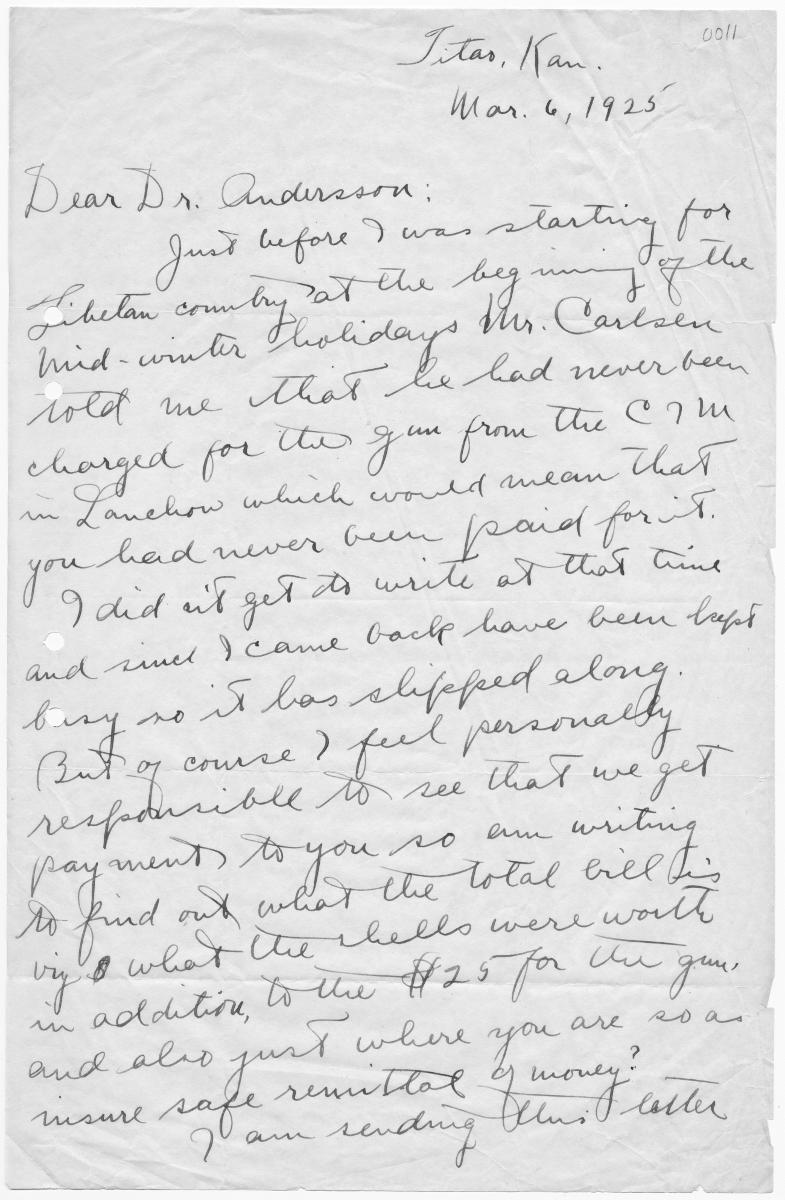 0011
Titao, Kan.
Mar. 6, 1925
Dear Dr. Andersson:
Just before I was starting for
Tibetan country at the beginning of the
mid-winter holidays Mr. Carlsen
told me that he had never been
charged for the gun from the C I M
in Lanchow which would mean that
you had never been paid for it.
I did n't get to write at that time
and since I came back have been kept
busy so it has slipped along.
But of course I feel personally
responsible to see that we get
payment to you so am writing
to find out what the total bill is
viz what the shells were worth
in addition, to the $25 for the gun,
and also just where you are so as
insure safe remittal of money?
I am sending this letter